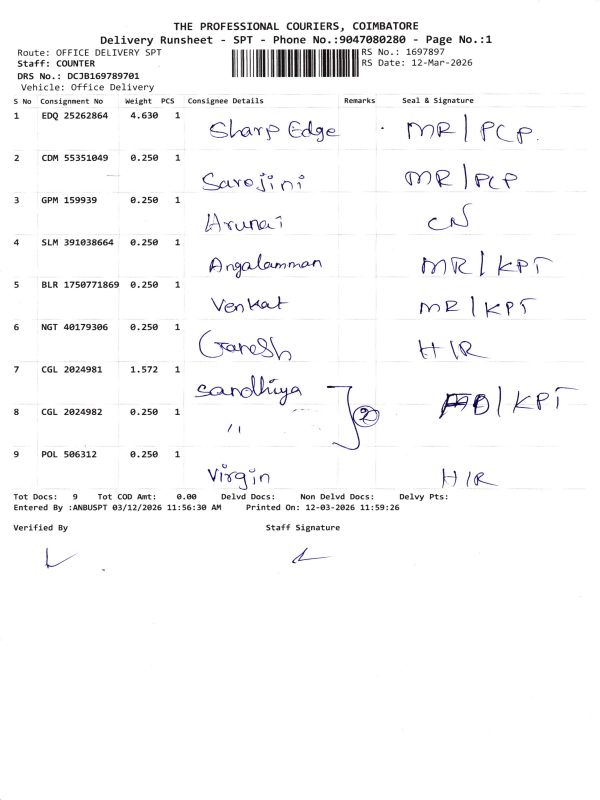 THE PROFESSIONAL COURIERS, COIMBATORE
Delivery Runsheet - SPT - Phone No.:9047080280 - Page No.:1
Route: OFFICE DELIVERY SPT RS No.: 1697897
Staff: COUNTER RS Date: 12-Mar-2026
DRS No.: DCJB169789701
Vehicle: Office Delivery
S No Consignment No Weight PCS Consignee Details Remarks Seal & Signature
1 EDQ 25262864 4.630 1 Sharp Edge MR/PCP.
2 CDM 55351049 0.250 1 Sarojini MR/PCP
3 GPM 159939 0.250 1 Arunai CN
4 SLM 391038664 0.250 1 Angalamman MR/KPT
5 BLR 1750771869 0.250 1 Venkat MR/KPT
6 NGT 40179306 0.250 1 Ganesh H/R
7 CGL 2024981 1.572 1 Sandhiya 2 /KPT
8 CGL 2024982 0.250 1 "
9 POL 506312 0.250 1 Virgin H/R
Tot Docs: 9 Tot COD Amt: 0.00 Delvd Docs: Non Delvd Docs: Delvy Pts:
Entered By :ANBUSPT 03/12/2026 11:56:30 AM Printed On: 12-03-2026 11:59:26
Verified By Staff Signature